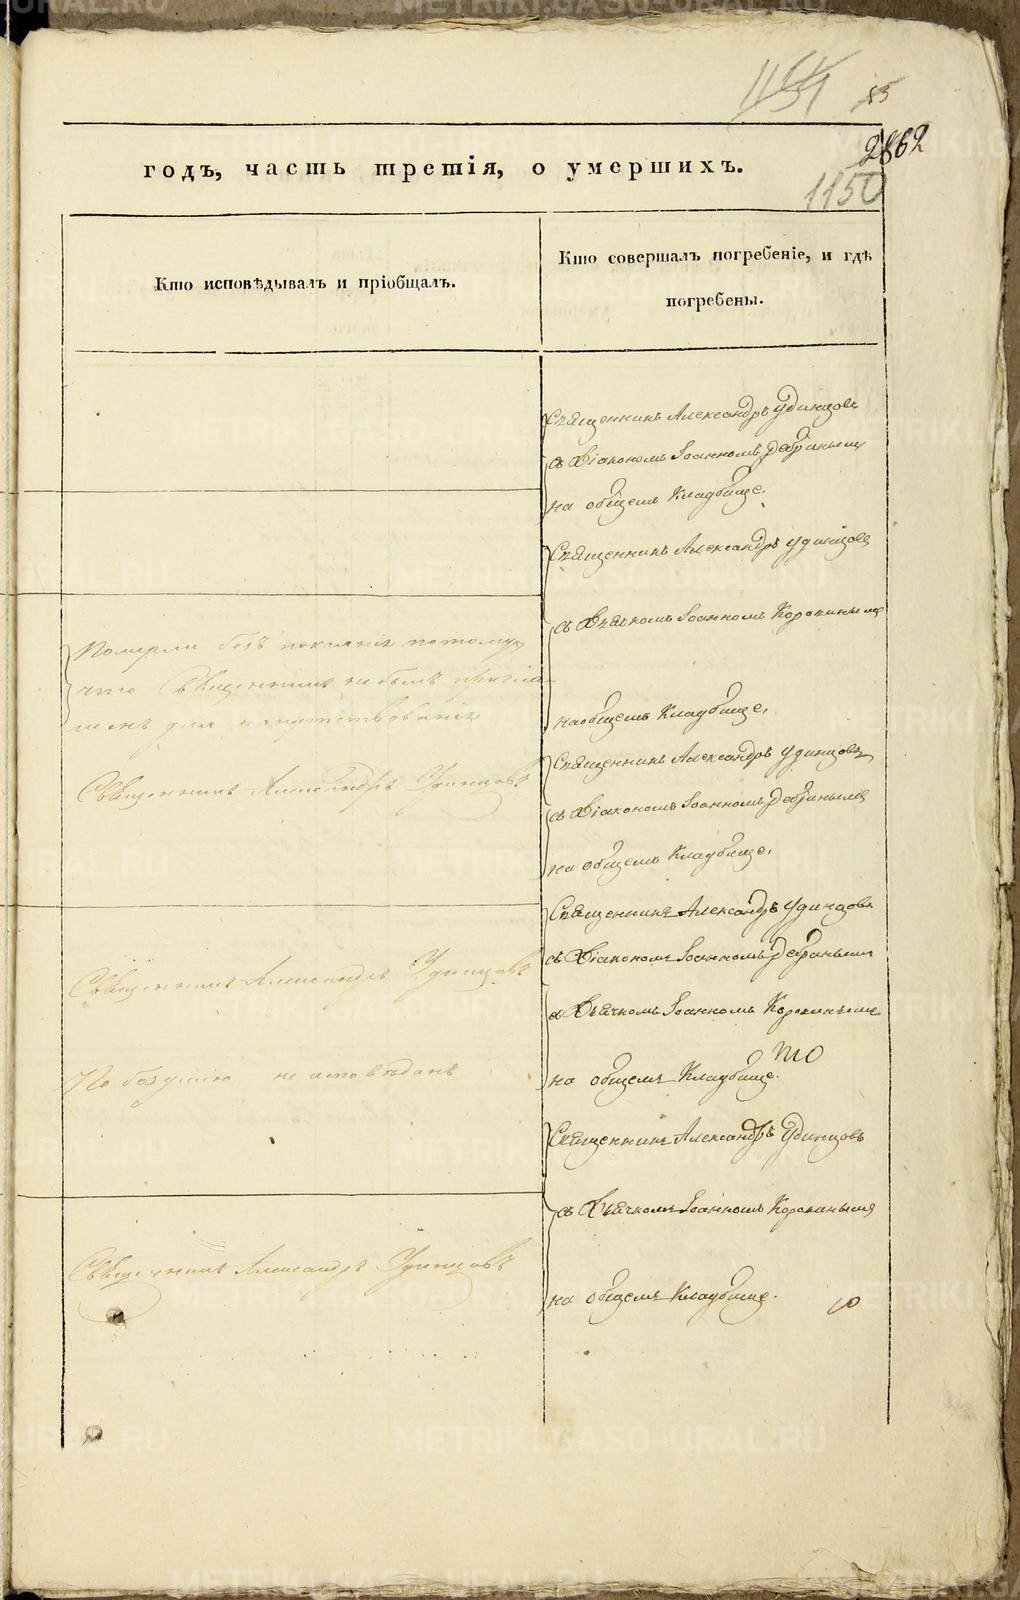 1151 83
2862
годъ, часть третія, о умершихъ.
1150
Кто исповѣдывалъ и пріобщалъ.
Кто совершалъ погребеніе, и гдѣ
погребены.
Померли безъ покаянія потому
что Священникъ не былъ пригла
шенъ для напутствованія
Священникъ Александръ Удинцовъ
Священникъ Александръ Удинцовъ
По безумію не исповѣданъ
Священникъ Александръ Удинцовъ
Священникъ Александръ Удинцовъ
съ Діакономъ Іоанномъ
на общемъ Кладбище.
Священникъ Александръ Удинцовъ
съ Дьячкомъ Іоанномъ Коровинымъ
на общемъ Кладбище.
Священникъ Александръ Удинцовъ
съ Діакономъ Іоанномъ
на общемъ Кладбище.
Священникъ Александръ Удинцовъ
съ Діакономъ Іоанномъ
и Дьячкомъ Іоанномъ Коровинымъ
на общемъ Кладбище.
Священникъ Александръ Удинцовъ
съ Дьячкомъ Іоанномъ Коровинымъ
на общемъ Кладбище.
METRIKI.GASO-URAL.RU